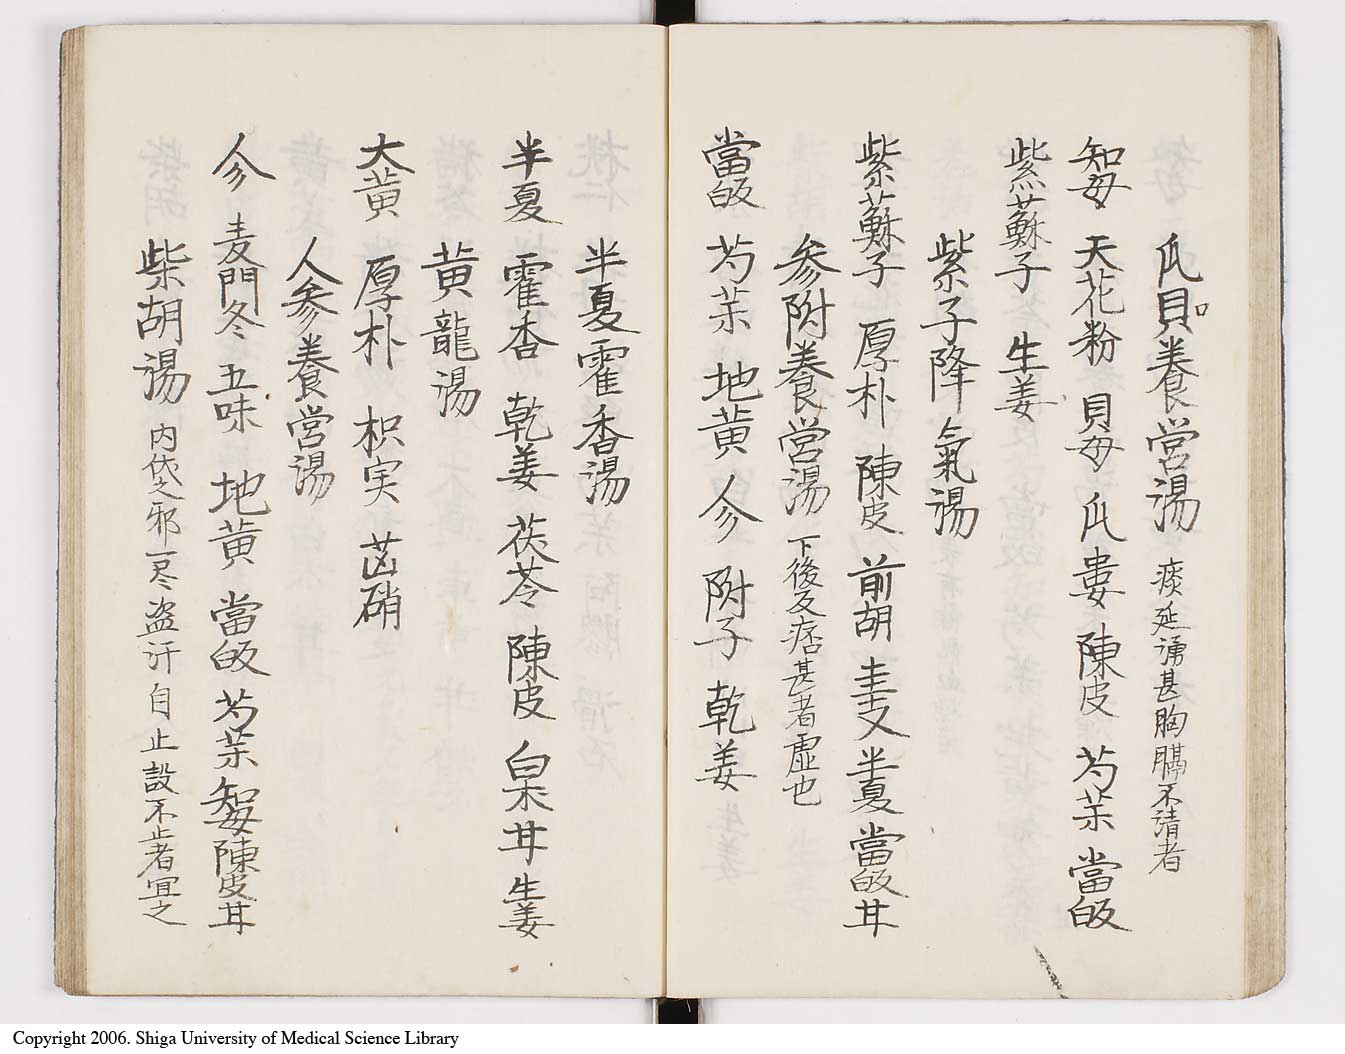 瓜貝養営湯 痰延涌甚胸膈不清者
知母 天花粉 貝母 瓜蔞 陳皮 芍薬 當皈
紫蘇子 生姜
紫子降氣湯
紫蘇子 厚朴 陳皮 前胡 半夏 當皈 甘
参附養営湯 下後反痞甚者虚也
當皈 芍薬 地黄 參 附子 乾姜
半夏霍香湯
半夏 霍香 乾姜 茯苓 陳皮 白朮 甘 生姜
黄龍湯
大黄 厚朴 枳実 芒硝
人参養営湯
參 麦門冬 五味 地黄 當皈 芍薬 知母 陳皮 甘
柴胡湯 内伏之邪一尽盗汗自止設不止者宜之
Copyright 2006. Shiga University of Medical Science Library